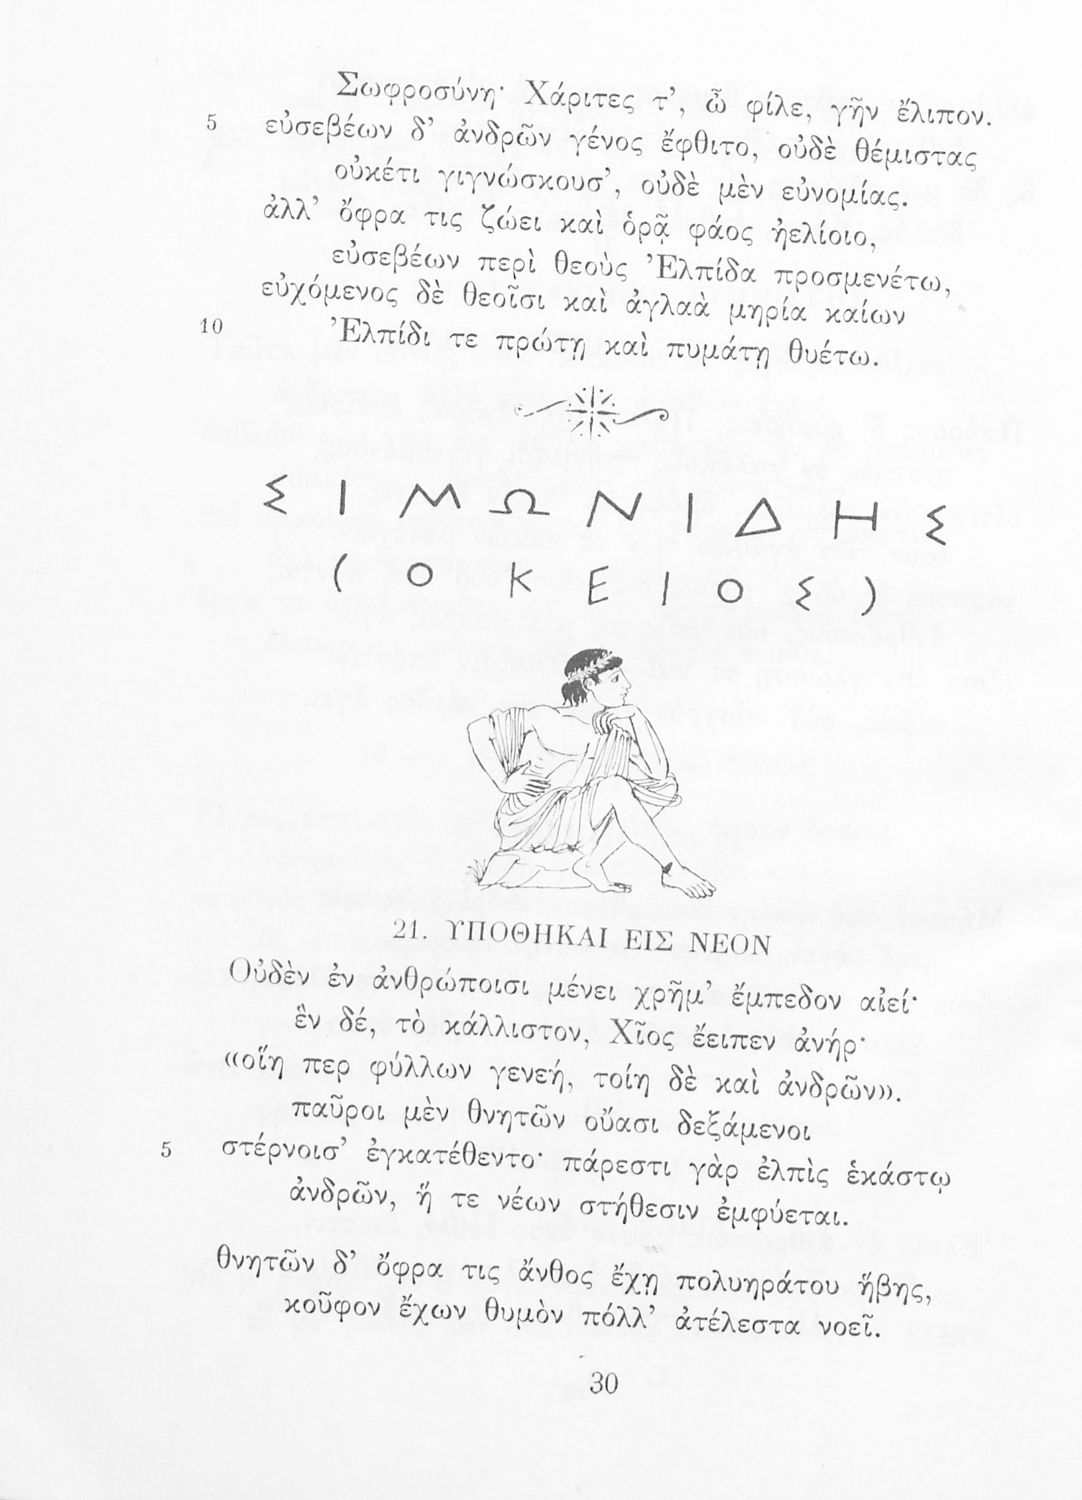 Σωφροσύνη· Χάριτες τ’, ὦ φίλε, γῆν ἔλιπον.
5 εὐσεβέων δ’ ἀνδρῶν γένος ἔφθιτο, οὐδὲ θέμιστας
οὐκέτι γιγνώσκουσ’, οὐδὲ μὲν εὐνομίας.
ἀλλ’ ὄφρα τις ζώει καὶ ὁρᾷ φάος ἠελίοιο,
εὐσεβέων περὶ θεοὺς Ἐλπίδα προσμενέτω,
εὐχόμενος δὲ θεοῖσι καὶ ἀγλαὰ μηρία καίων
10 Ἐλπίδι τε πρώτῃ καὶ πυμάτῃ θυέτω.
ΣΙΜΩΝΙΔΗΣ
(Ο ΚΕΙΟΣ)
21. ΥΠΟΘΗΚΑΙ ΕΙΣ ΝΕΟΝ
Οὐδὲν ἐν ἀνθρώποισι μένει χρῆμ’ ἔμπεδον αἰεί·
ἓν δέ, τὸ κάλλιστον, Χῖος ἔειπεν ἀνήρ·
«οἵη περ φύλλων γενεή, τοίη δὲ καὶ ἀνδρῶν».
παῦροι μὲν θνητῶν οὔασι δεξάμενοι
5 στέρνοισ’ ἐγκατέθεντο· πάρεστι γὰρ ἐλπὶς ἑκάστῳ
ἀνδρῶν, ἥ τε νέων στήθεσιν ἐμφύεται.
θνητῶν δ’ ὄφρα τις ἄνθος ἔχῃ πολυηράτου ἥβης,
κοῦφον ἔχων θυμὸν πόλλ’ ἀτέλεστα νοεῖ.
30